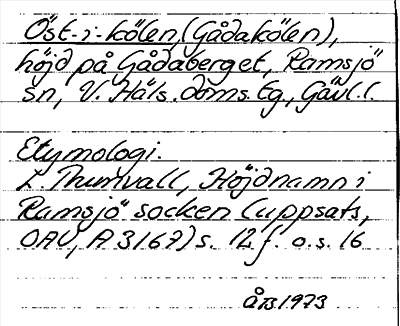 Öst-i-kölen, (Gådakölen),
höjd på Gådaberget, Ramsjö
sn, V. Häls. doms. tg., Gävl. l.
Etymologi.
L. Thunvall, Höjdnamn i
Ramsjö socken (uppsats,
OAU, A 3167) s. 12 f. o. s. 16
ÅB. 1973